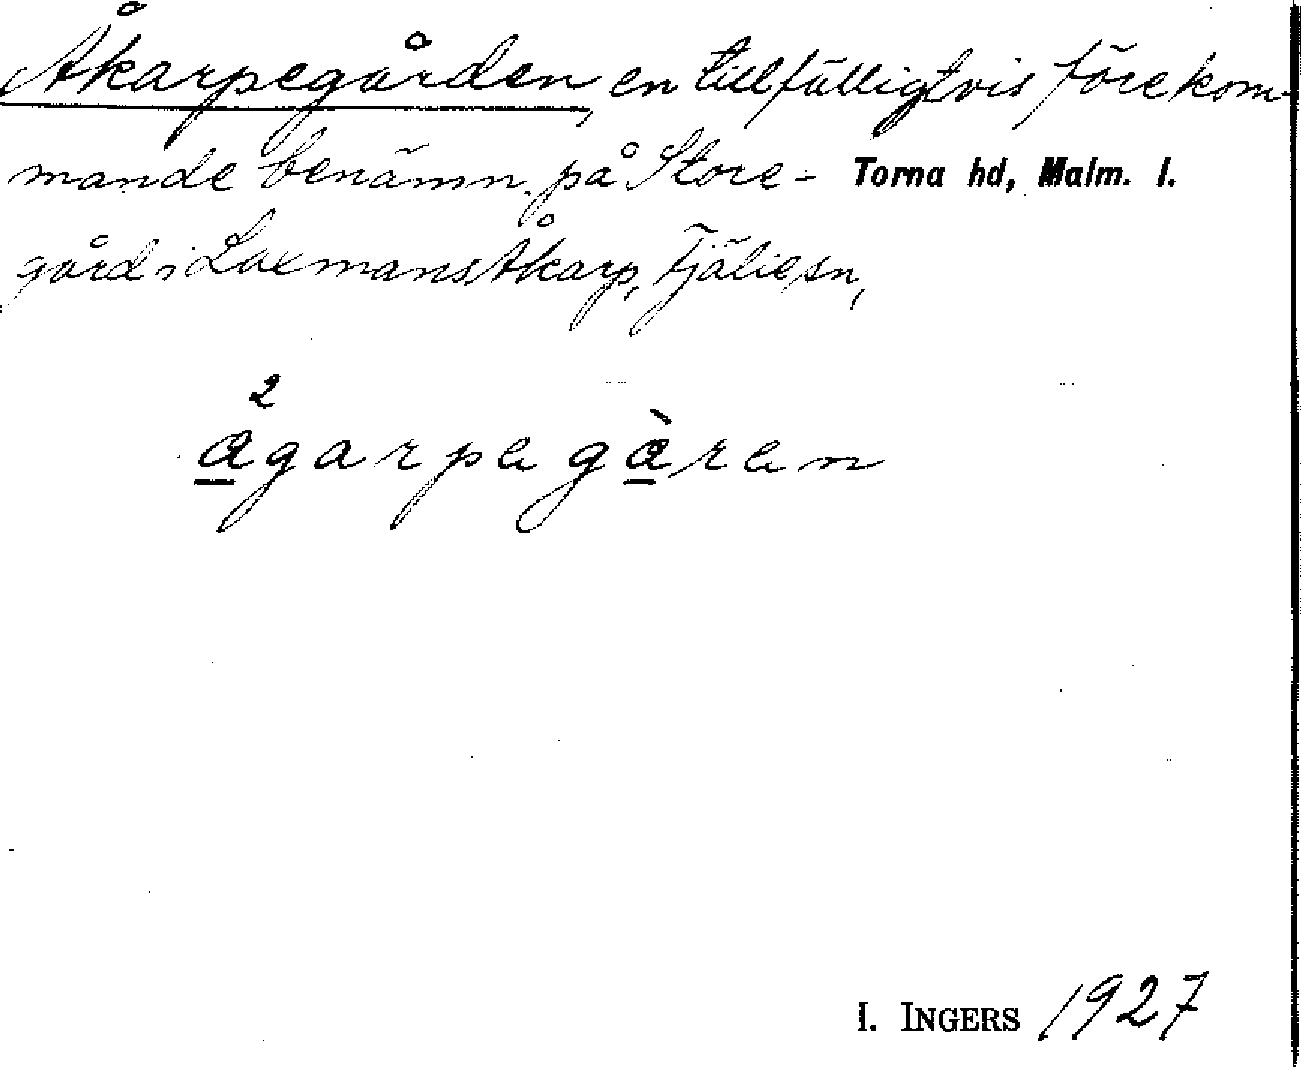 Åkarpegården, en tillfälligtvis förekom-
mande benämn. på Store- Torna hd, Malm. l.
gård i Laxmans Åkarp, Fjälie sn,
2
ågarpegàren
I. INGERS 1927